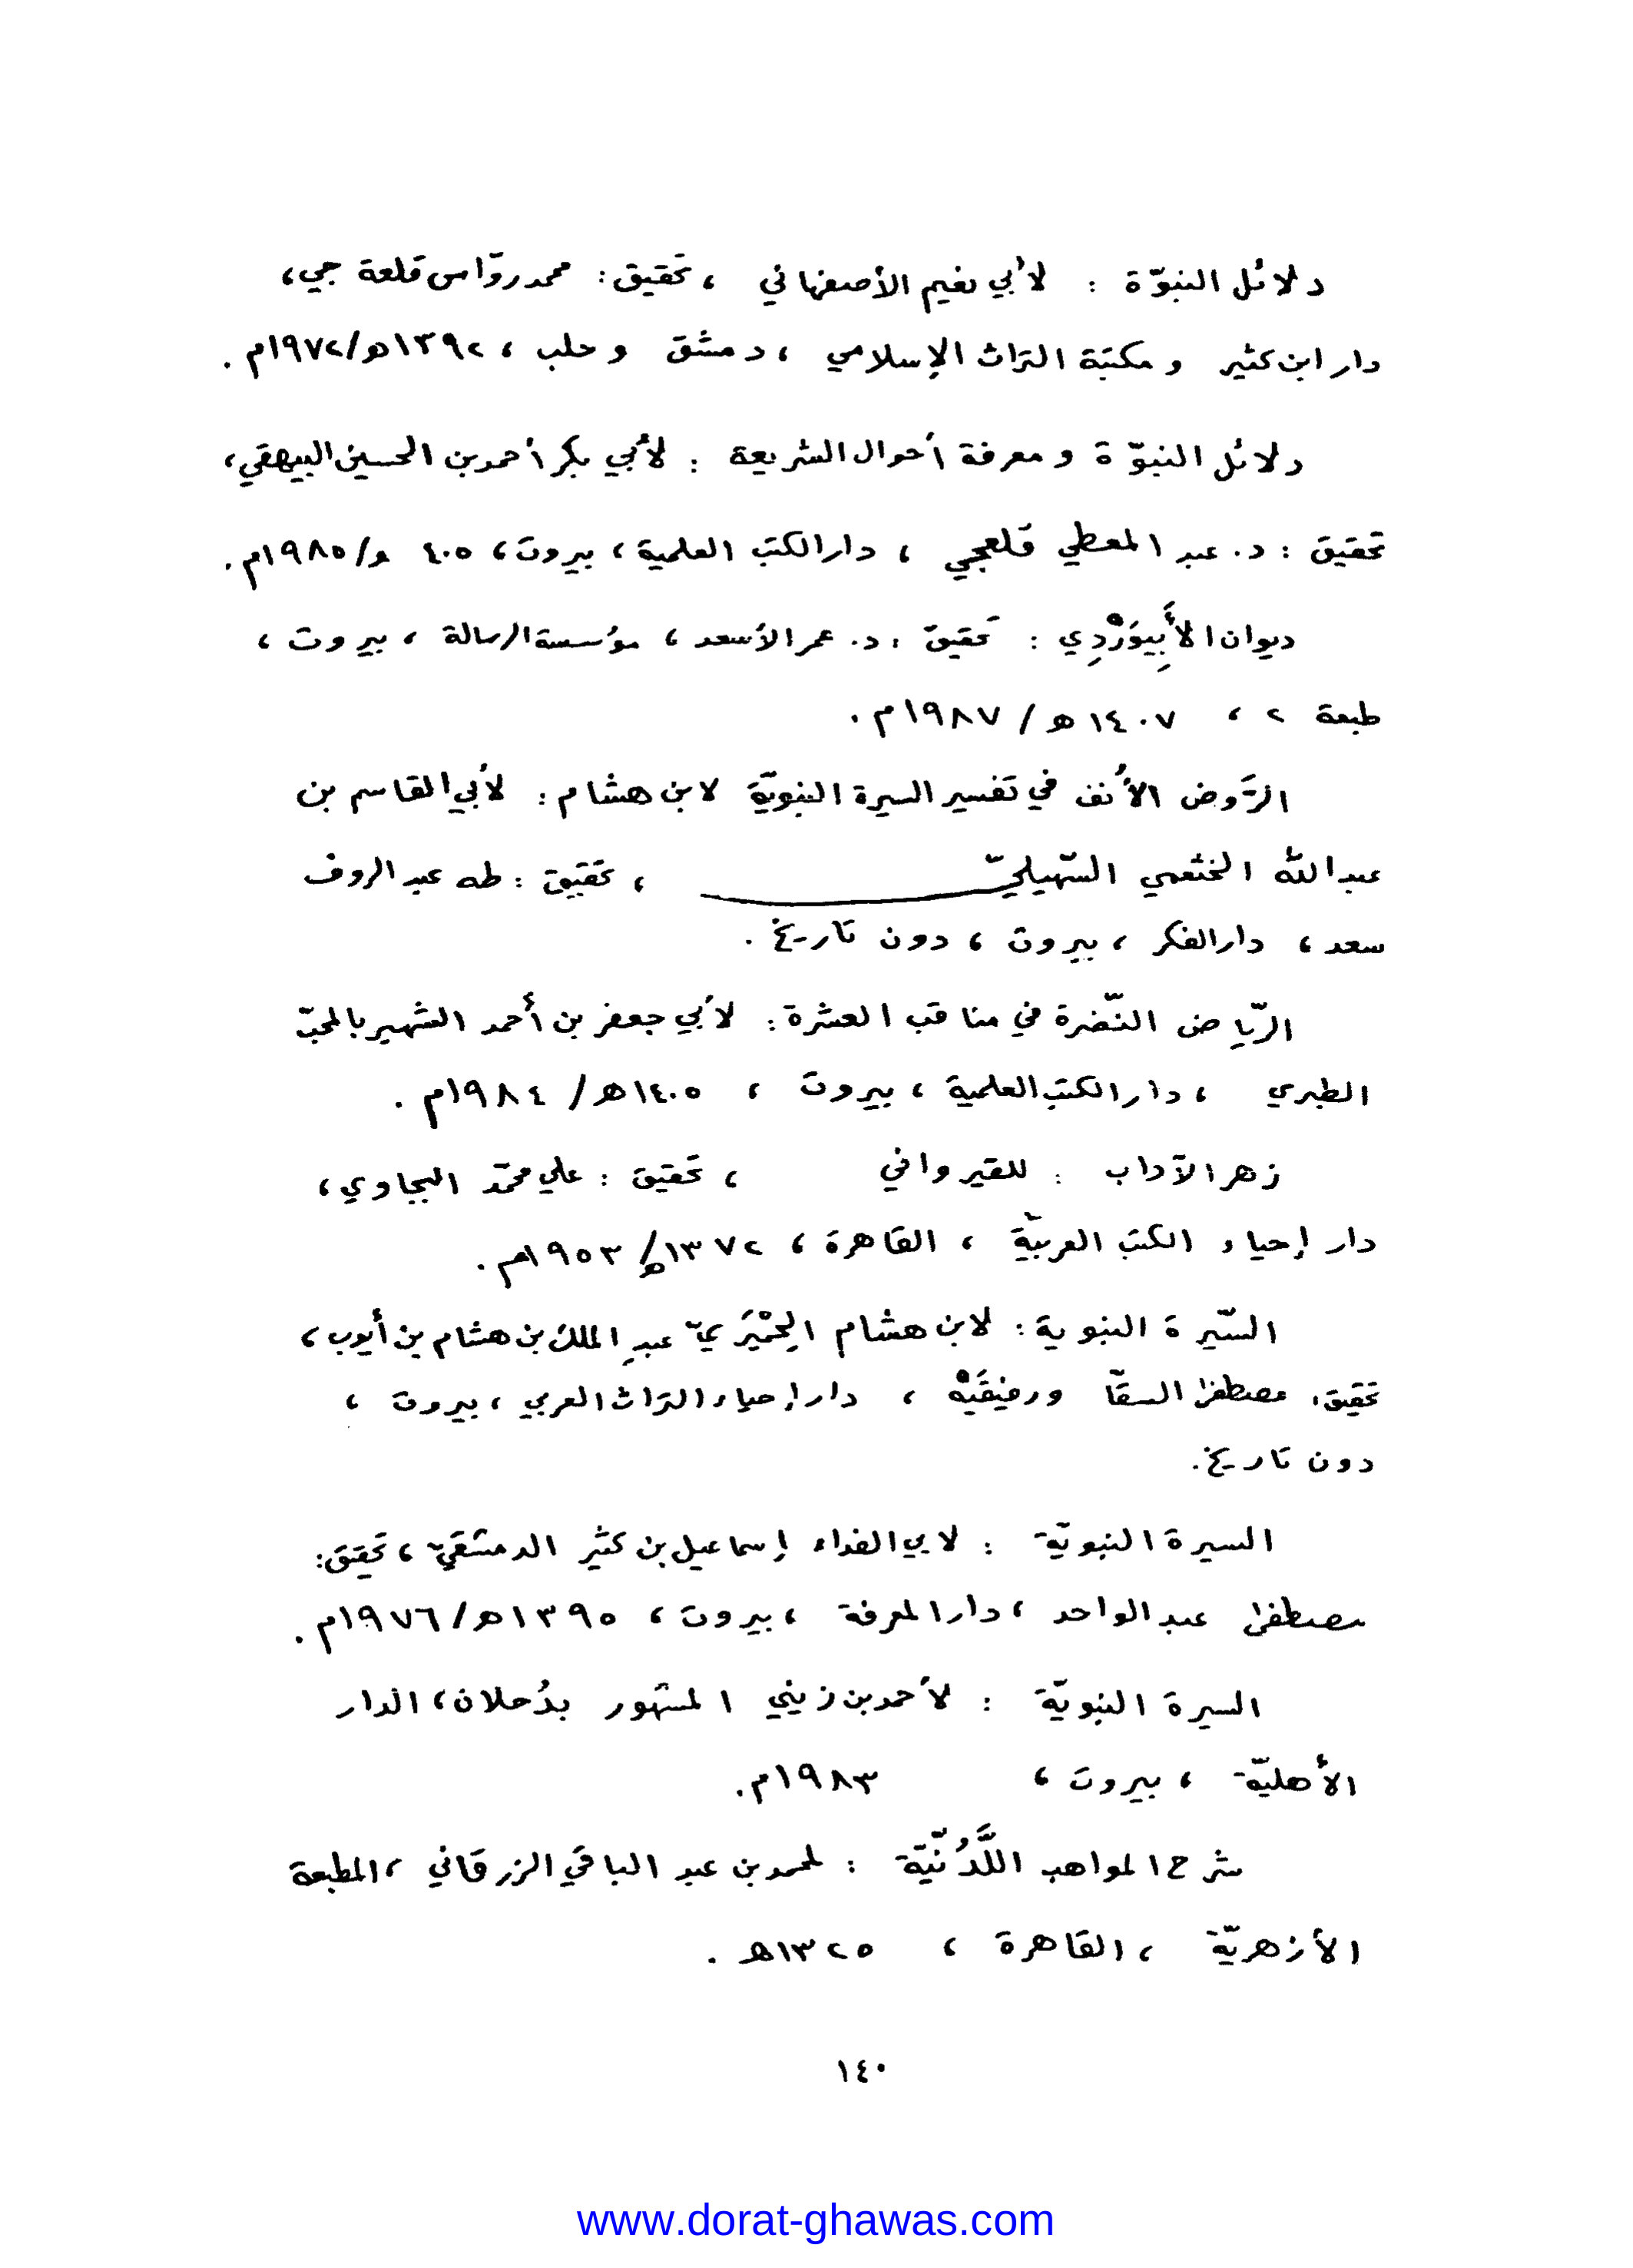 دلائل النبوّة : لأبي نعيم الأصفهاني ، تحقيق : محمد روّاس قلعة جي،
دار ابن كثير ومكتبة التراث الإسلامي ، دمشق وحلب ، ١٣٩٢هـ/١٩٧٢م .
دلائل النبوّة ومعرفة أحوال الشريعة : لأبي بكر أحمد بن الحسين البيهقي،
تحقيق : د. عبد المعطي قلعجي ، دار الكتب العلمية ، بيروت ، ٤٠٥ هـ/١٩٨٥م.
ديوان الأَبِيوَرْدِي : تحقيق : د. عمر الأسعد ، مؤسسة الرسالة ، بيروت ،
طبعة ٢ ، ١٤٠٧ هـ / ١٩٨٧م .
الرَّوض الأُنف في تفسير السيرة النبويّة لابن هشام : لأبي القاسم بن
عبدالله الخثعمي السّهيليّ ، تحقيق : طه عبد الروف
سعد ، دار الفكر ، بيروت ، دون تاريخ .
الرّياض النّضرة في مناقب العشرة : لأبي جعفر بن أحمد الشهير بالمحبّ
الطبري ، دار الكتب العلمية ، بيروت ، ١٤٠٥هـ/ ١٩٨٤م .
زهر الآداب : للقيرواني ، تحقيق : علي محمّد البجاوي ،
دار إحياء الكتب العربيّة ، القاهرة ، ١٣٧٢هـ/١٩٥٣م .
السّيرة النبوية : لابن هشام الحِمْيَريّ عبدِ الملك بن هشام بن أيوب ،
تحقيق : مصطفى السقّا ورفيقَيْه ، دار إحياء التراث العربي ، بيروت ،
دون تاريخ .
السيرة النبويّة : لابي الفداء إسماعيل بن كثير الدمشقيّ ، تحقيق :
مصطفى عبد الواحد ، دار المعرفة ، بيروت ، ١٣٩٥هـ/١٩٧٦م .
السيرة النبويّة : لأحمد بن زيني المشهور بدُحلان ، الدار
الأهليّة ، بيروت ، ١٩٨٣م.
شرح المواهب اللَّدُنّيّة : لمحمد بن عبد الباقي الزرقاني ، المطبعة
الأزهريّة ، القاهرة ، ١٣٢٥هـ .
١٤٠
www.dorat-ghawas.com